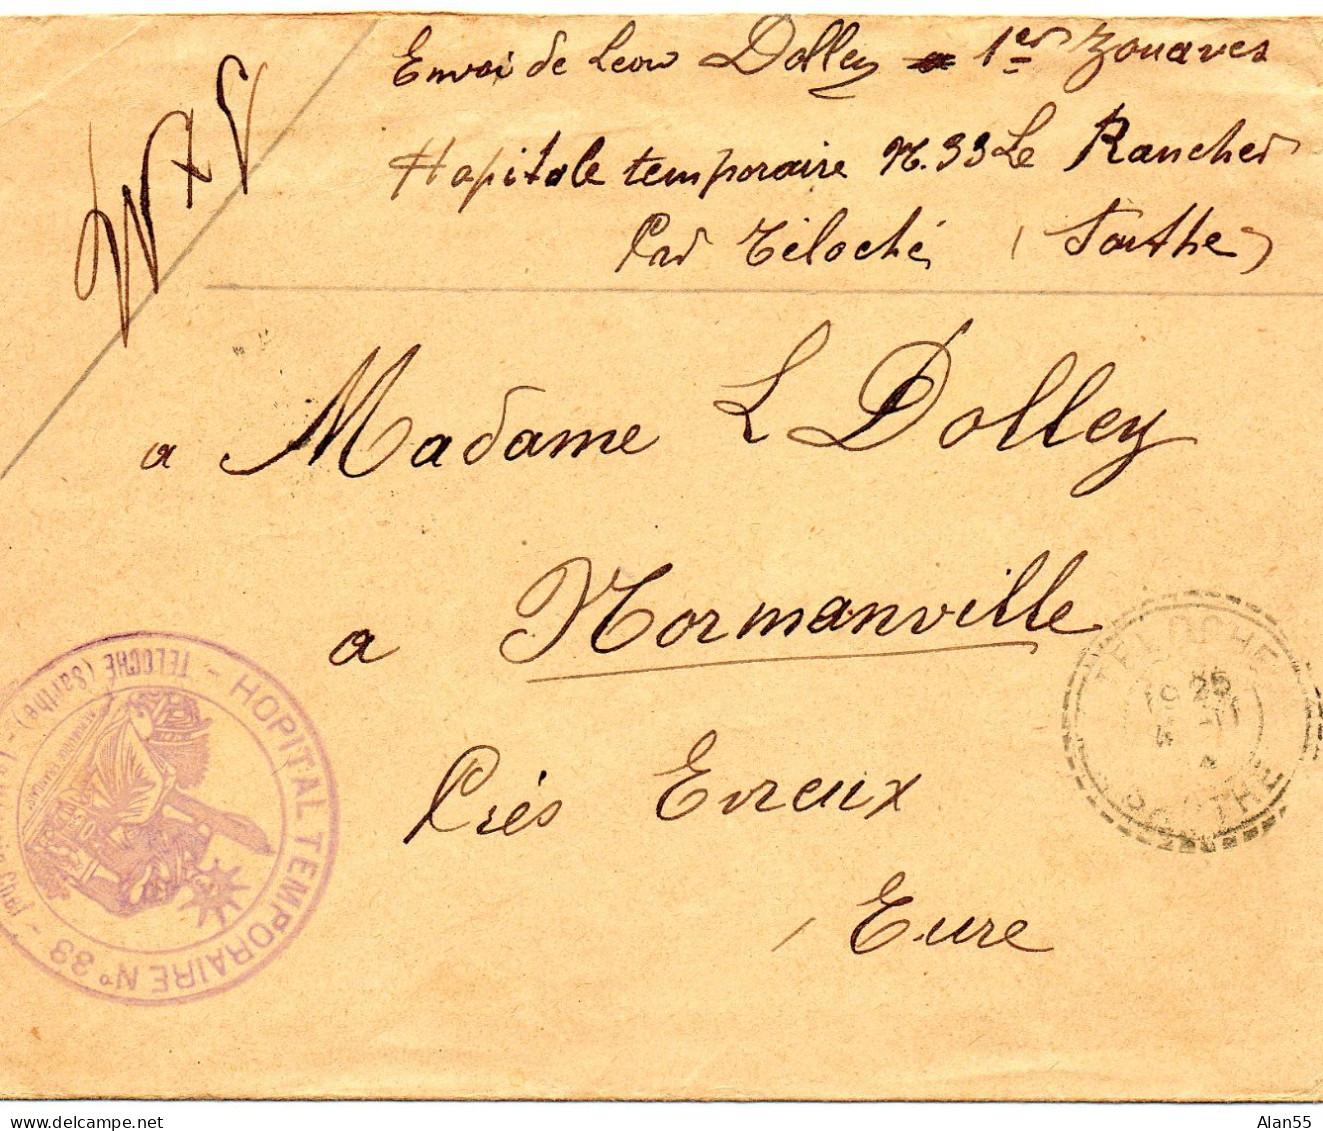 Envoi de Leon Dolley 1er Zouaves
Hopitale temporaire N. 33 Le Rancher
Par Téloché (Sarthe)
a Madame L Dolley
a Normanville
Près Evreux
Eure
HOPITAL TEMPORAIRE N° 33 - TELOCHE (Sarthe) -
TELOCHE
SARTHE
Alan55